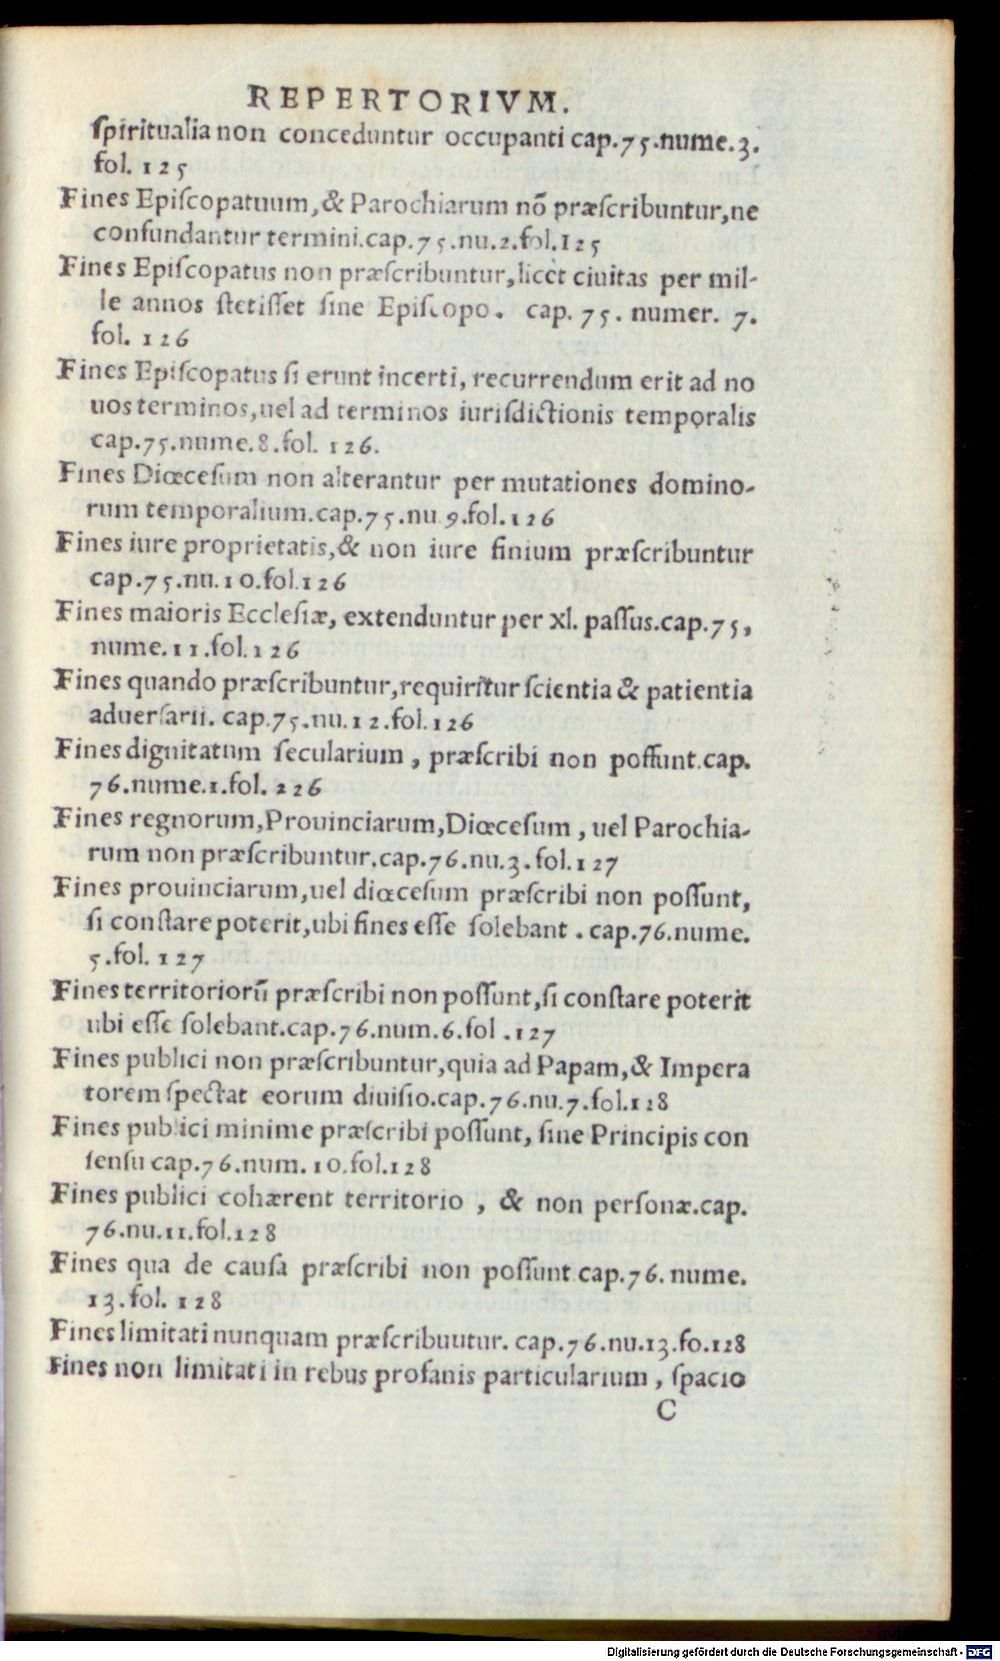 REPERTORIVM.
ſpiritualia non conceduntur occupanti cap.75.nume.3.
fol. 125
Fines Epiſcopatuum,& Parochiarum nõ præſcribuntur,ne
confundantur termini.cap.75.nu.2.fol.125
Fines Epiſcopatus non præſcribuntur,licèt ciuitas per mil-
le annos ſtetiſſet ſine Epiſcopo. cap. 75. numer. 7.
fol. 126
Fines Epiſcopatus ſi erunt incerti, recurrendum erit ad no
uos terminos,uel ad terminos iuriſdictionis temporalis
cap.75.nume.8.fol. 126.
Fines Diœceſum non alterantur per mutationes domino-
rum temporalium.cap.75.nu 9.fol.126
Fines iure proprietatis,& non iure finium præſcribuntur
cap.75.nu.10.fol.126
Fines maioris Eccleſiæ, extenduntur per xl. paſſus.cap.75,
nume.11.fol.126
Fines quando præſcribuntur,requiritur ſcientia & patientia
aduerſarii. cap.75.nu.12.fol.126
Fines dignitatum ſecularium , præſcribi non poſſunt.cap.
76.nume.1.fol. 226
Fines regnorum,Prouinciarum,Diœceſum , uel Parochia-
rum non præſcribuntur.cap.76.nu.3.fol.127
Fines prouinciarum,uel diœceſum præſcribi non poſſunt,
ſi conſtare poterit,ubi fines eſſe ſolebant . cap.76.nume.
5.fol. 127
Fines territoriorũ præſcribi non poſſunt,ſi conſtare poterit
ubi eſſe ſolebant.cap.76.num.6.fol .127
Fines publici non præſcribuntur,quia ad Papam,& Impera
torem ſpectat eorum diuiſio.cap.76.nu.7.fol.128
Fines publici minime præſcribi poſſunt, ſine Principis con
ſenſu cap.76.num. 10.fol.128
Fines publici cohærent territorio , & non perſonæ.cap.
76.nu.11.fol.128
Fines qua de cauſa præſcribi non poſſunt cap.76. nume.
13.fol. 128
Fines limitati nunquam præſcribuutur. cap.76.nu.13.fo.128
Fines non limitati in rebus profanis particularium , ſpacio
C
Digitalisierung gefördert durch die Deutsche Forschungsgemeinschaft - DFG